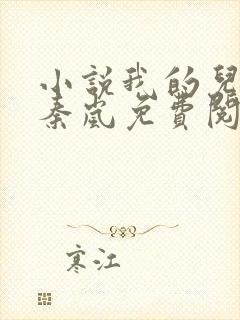 小説我的兒
秦嵐免費閱
寒江